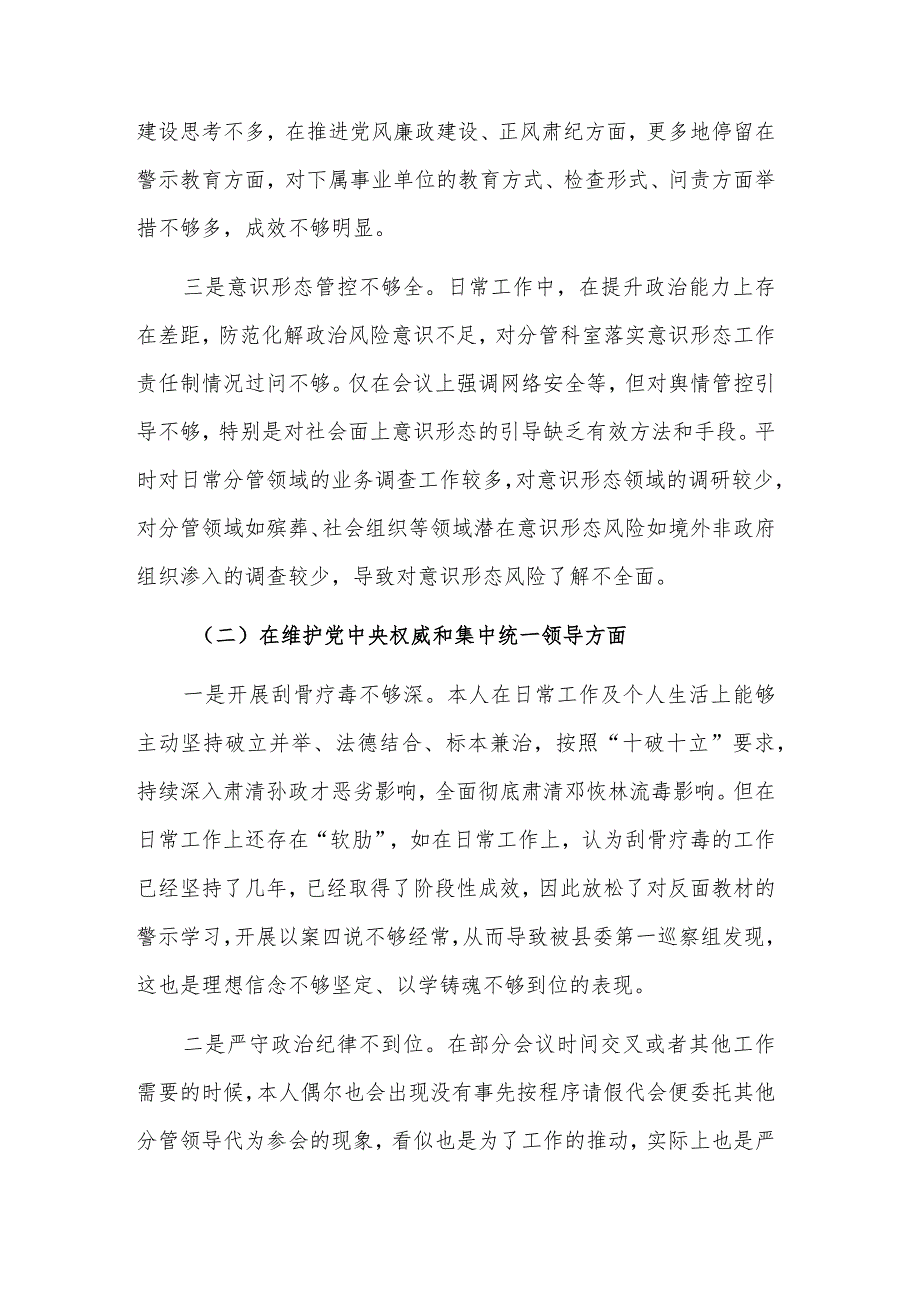 建设思考不多，在推进党风廉政建设、正风肃纪方面，更多地停留在
警示教育方面，对下属事业单位的教育方式、检查形式、问责方面举
措不够多，成效不够明显。
三是意识形态管控不够全。日常工作中，在提升政治能力上存
在差距，防范化解政治风险意识不足，对分管科室落实意识形态工作
责任制情况过问不够。仅在会议上强调网络安全等，但对舆情管控引
导不够，特别是对社会面上意识形态的引导缺乏有效方法和手段。平
时对日常分管领域的业务调查工作较多，对意识形态领域的调研较少，
对分管领域如殡葬、社会组织等领域潜在意识形态风险如境外非政府
组织渗入的调查较少，导致对意识形态风险了解不全面。
（二）在维护党中央权威和集中统一领导方面
一是开展刮骨疗毒不够深。本人在日常工作及个人生活上能够
主动坚持破立并举、法德结合、标本兼治，按照“十破十立”要求，
持续深入肃清孙政才恶劣影响，全面彻底肃清邓恢林流毒影响。但在
日常工作上还存在“软肋”，如在日常工作上，认为刮骨疗毒的工作
已经坚持了几年，已经取得了阶段性成效，因此放松了对反面教材的
警示学习，开展以案四说不够经常，从而导致被县委第一巡察组发现，
这也是理想信念不够坚定、以学铸魂不够到位的表现。
二是严守政治纪律不到位。在部分会议时间交叉或者其他工作
需要的时候，本人偶尔也会出现没有事先按程序请假代会便委托其他
分管领导代为参会的现象，看似也是为了工作的推动，实际上也是严